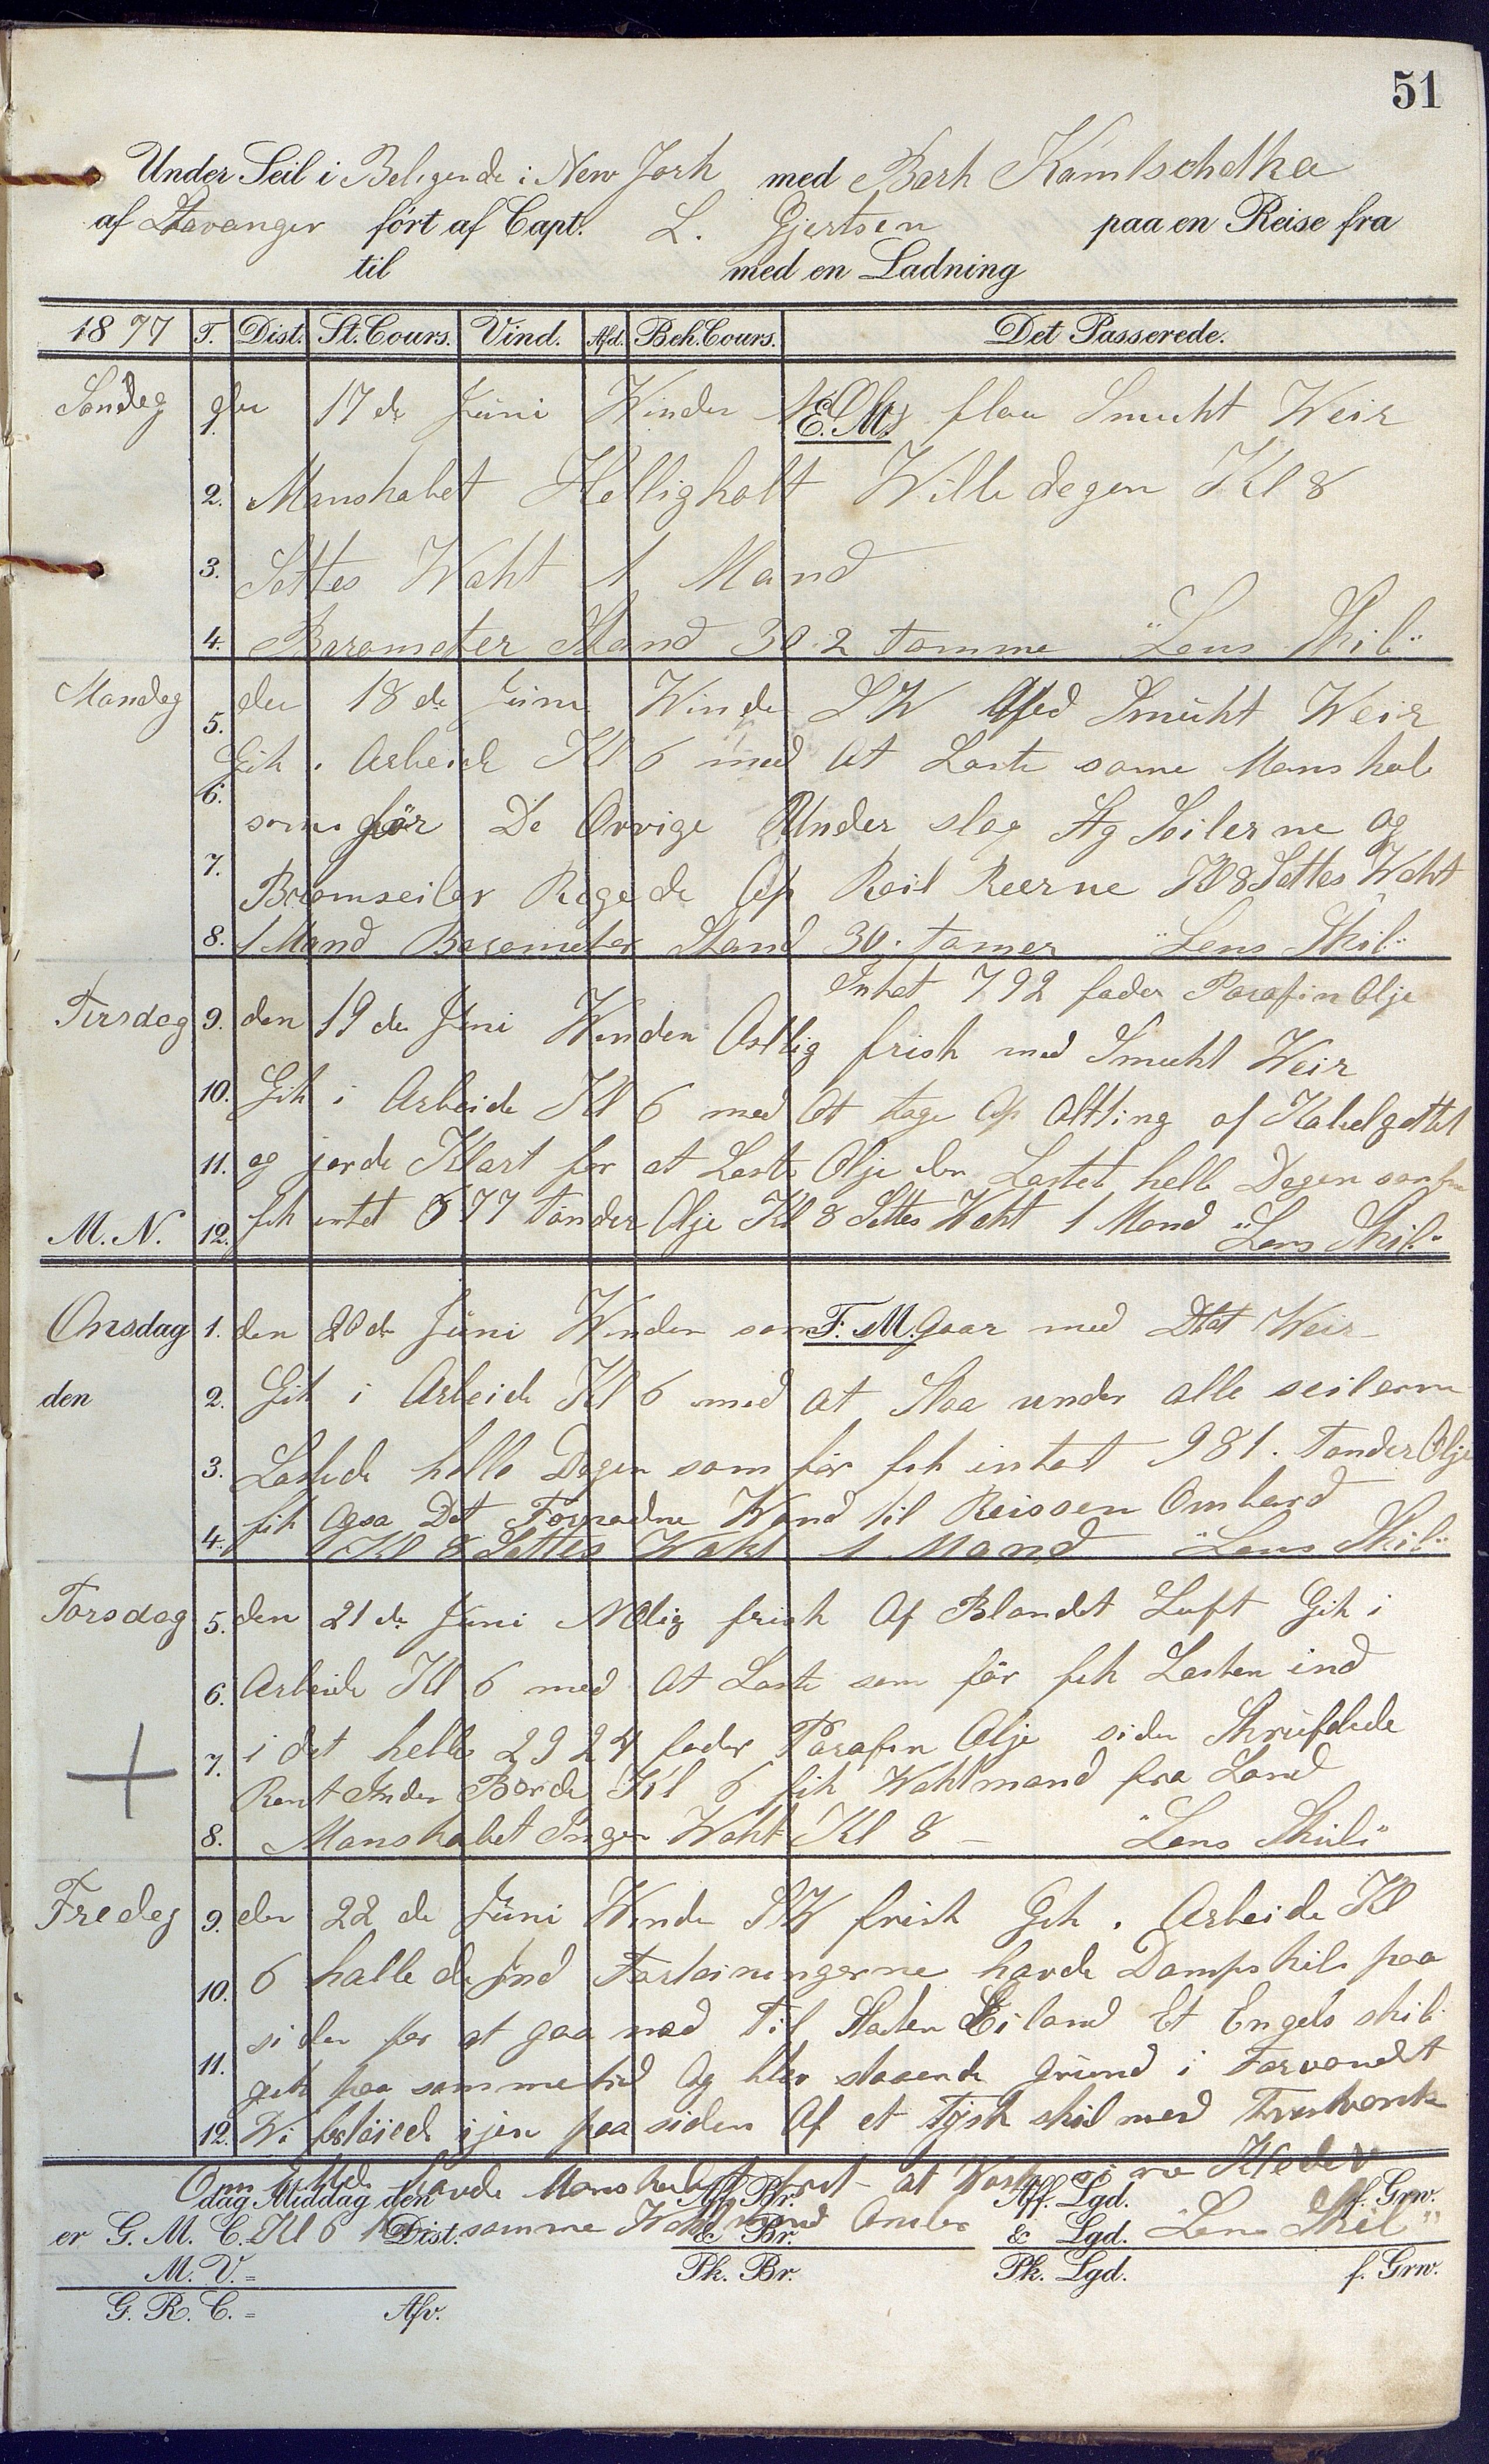 51
Under Seil i Beligende i New Jork med Bark Kamtschatka
af Stavanger fört af Capt. L. Gjertsen paa en Reise fra
til med en Ladning
1877 T. Dist. St. Cours. Vind. Afd. Beh. Cours. Det Passerede.
E. M.
Søndag den 17de Juni Winden flau Smukt Weir
Manskabet Helligholt Hille degen Kl 8
Settes Waht 1 Mand
Barometer Stand 30.2 tomme "Lens Skib"
Mandag den 18de Juni Winde SW Med Smukt Weir
Gik i Arbeide Kl 6 med At Laste same Manskab
som för De Övrige Under slog Stg Seilerne og
Bramseiler Regede Op Roil Reerne Kl 8 Settes Waht
1 Mand Barometer Stand 30. tomer "Lens Skib"
Intat 792 fader Parafin Olje
Tirsdag den 19de Juni Winden Östlig frisk med Smukt Weir
Gik i Arbeide Kl 6 med At tage Op Altting af Kabelgattet
og jorde Klart for at Laste Olje den Lastet helle Dagen som før
fik intet 677 tønder Olje Kl 8 Settes Waht 1 Mand "Lens Skib"
M. N.
F. M.
Onsdag den 20de Juni Winden som Gaar med Dtat Weir
den Gik i Arbeide Kl 6 med At Slaa under alle seilerne
Lastede helle Dagen som för fik intat 981. Tønder Olje
fik Ogsa Det Fornødne Wand til Reissen Ombard
Kl 8 Settes Waht 1 Mand "Lens Skib"
Torsdag den 21de Juni NOlig frisk Af Blandet Luft Gik i
Arbeide Kl 6 med At Laste som för fik Lasten ind
i det helle 2924 fader Parafin Olje siden Skruffede
Rent Inden Borde Kl 6 fik Wahtmand fra Land
Manskabet Ingen Waht Kl 8 — "Lens Skib"
Fredag den 22de Juni Winde SW frisk Gik i Arbeide Kl
6 hallede Ind Fortøiningerne havde Dampskib paa
siden for at gaa ned Til Staten Eiland Et Engels skib
gik paa sammetid Og blev staaende Grund i Farvandet
Wi fortøiede ijen paa siden Af et Tysk skib med
Om havde Manskabet fri at Waske sine Kleder
Kl 6 samme Wahtmand Ombor "Lens Skib"
dag Middag den Aff. Br. Aff. Lgd. f. Grw.
er G. M. C. = Dist. & Br. & Lgd.
M. V. = Pk. Br. Pk. Lgd. f. Grw.
G. R. C. = Afv.